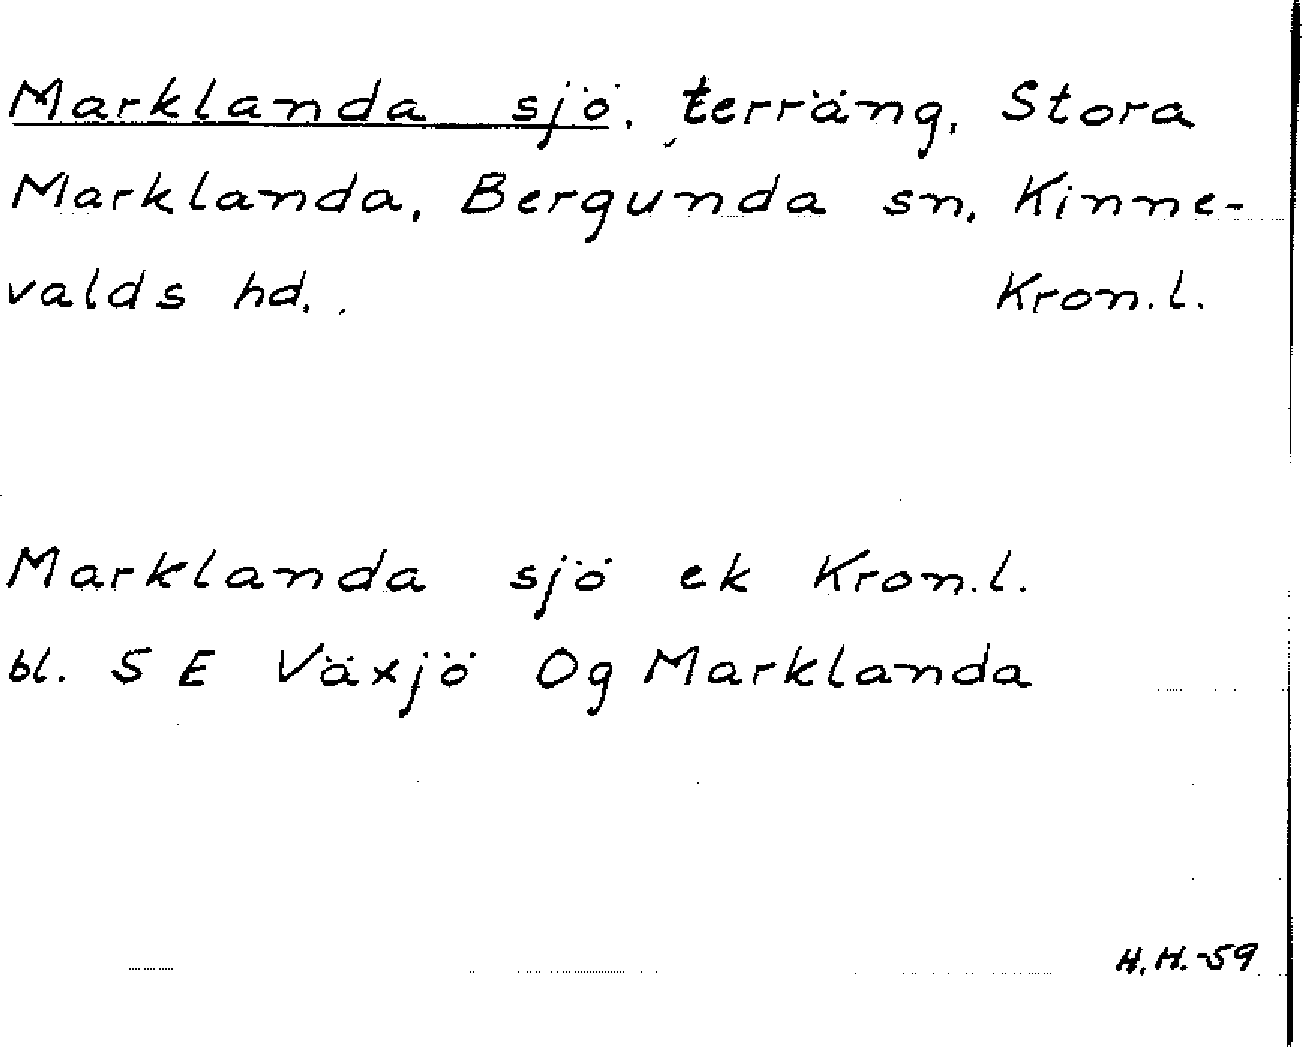 Marklanda sjö, terräng, Stora
Marklanda, Bergunda sn, Kinne-
valds hd. Kron.l.
Marklanda sjö ek Kron.l.
bl. S E Växjö Og Marklanda
H.H.-59